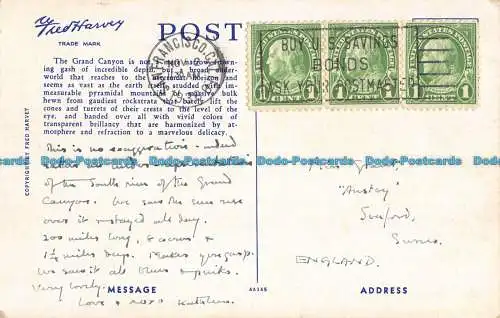 Fred Harvey
TRADE MARK
POST
FRANCISCO, C
NOV 2
BUY U.S. SAVINGS
BONDS
ASK YOUR POSTMASTER
1 CENT 1
1 CENT 1
1 CENT 1
The Grand Canyon is not a mere narrow, yawn-
ing gash of incredible depth, but a broad under-
world that reaches to the uttermost horizon and
seems as vast as the earth itself, studded with im-
measurable pyramidal mountains of massive bulk
hewn from gaudiest rockstrata that barely lift the
cones and turrets of their crests to the level of the
eye, and banded over all with vivid colors of
transparent brilliancy that are harmonized by at-
mosphere and refraction to a marvelous delicacy.
COPYRIGHT BY FRED HARVEY
This is no exaggeration - indeed
of the South rim of the Grand
Canyon. We saw the sun rise
over it & stayed all day.
200 miles long, 8 across &
1¼ miles deep. Makes you gasp.
We saw it all blues & pinks.
Very lovely.
Love
Kathleen
"Austey"
Seaford,
Sussex
ENGLAND.
MESSAGE
ADDRESS
Dodo-Postcards Dodo-Postcards Dodo-Postcards Dodo-Postcards Dodo-Postcards